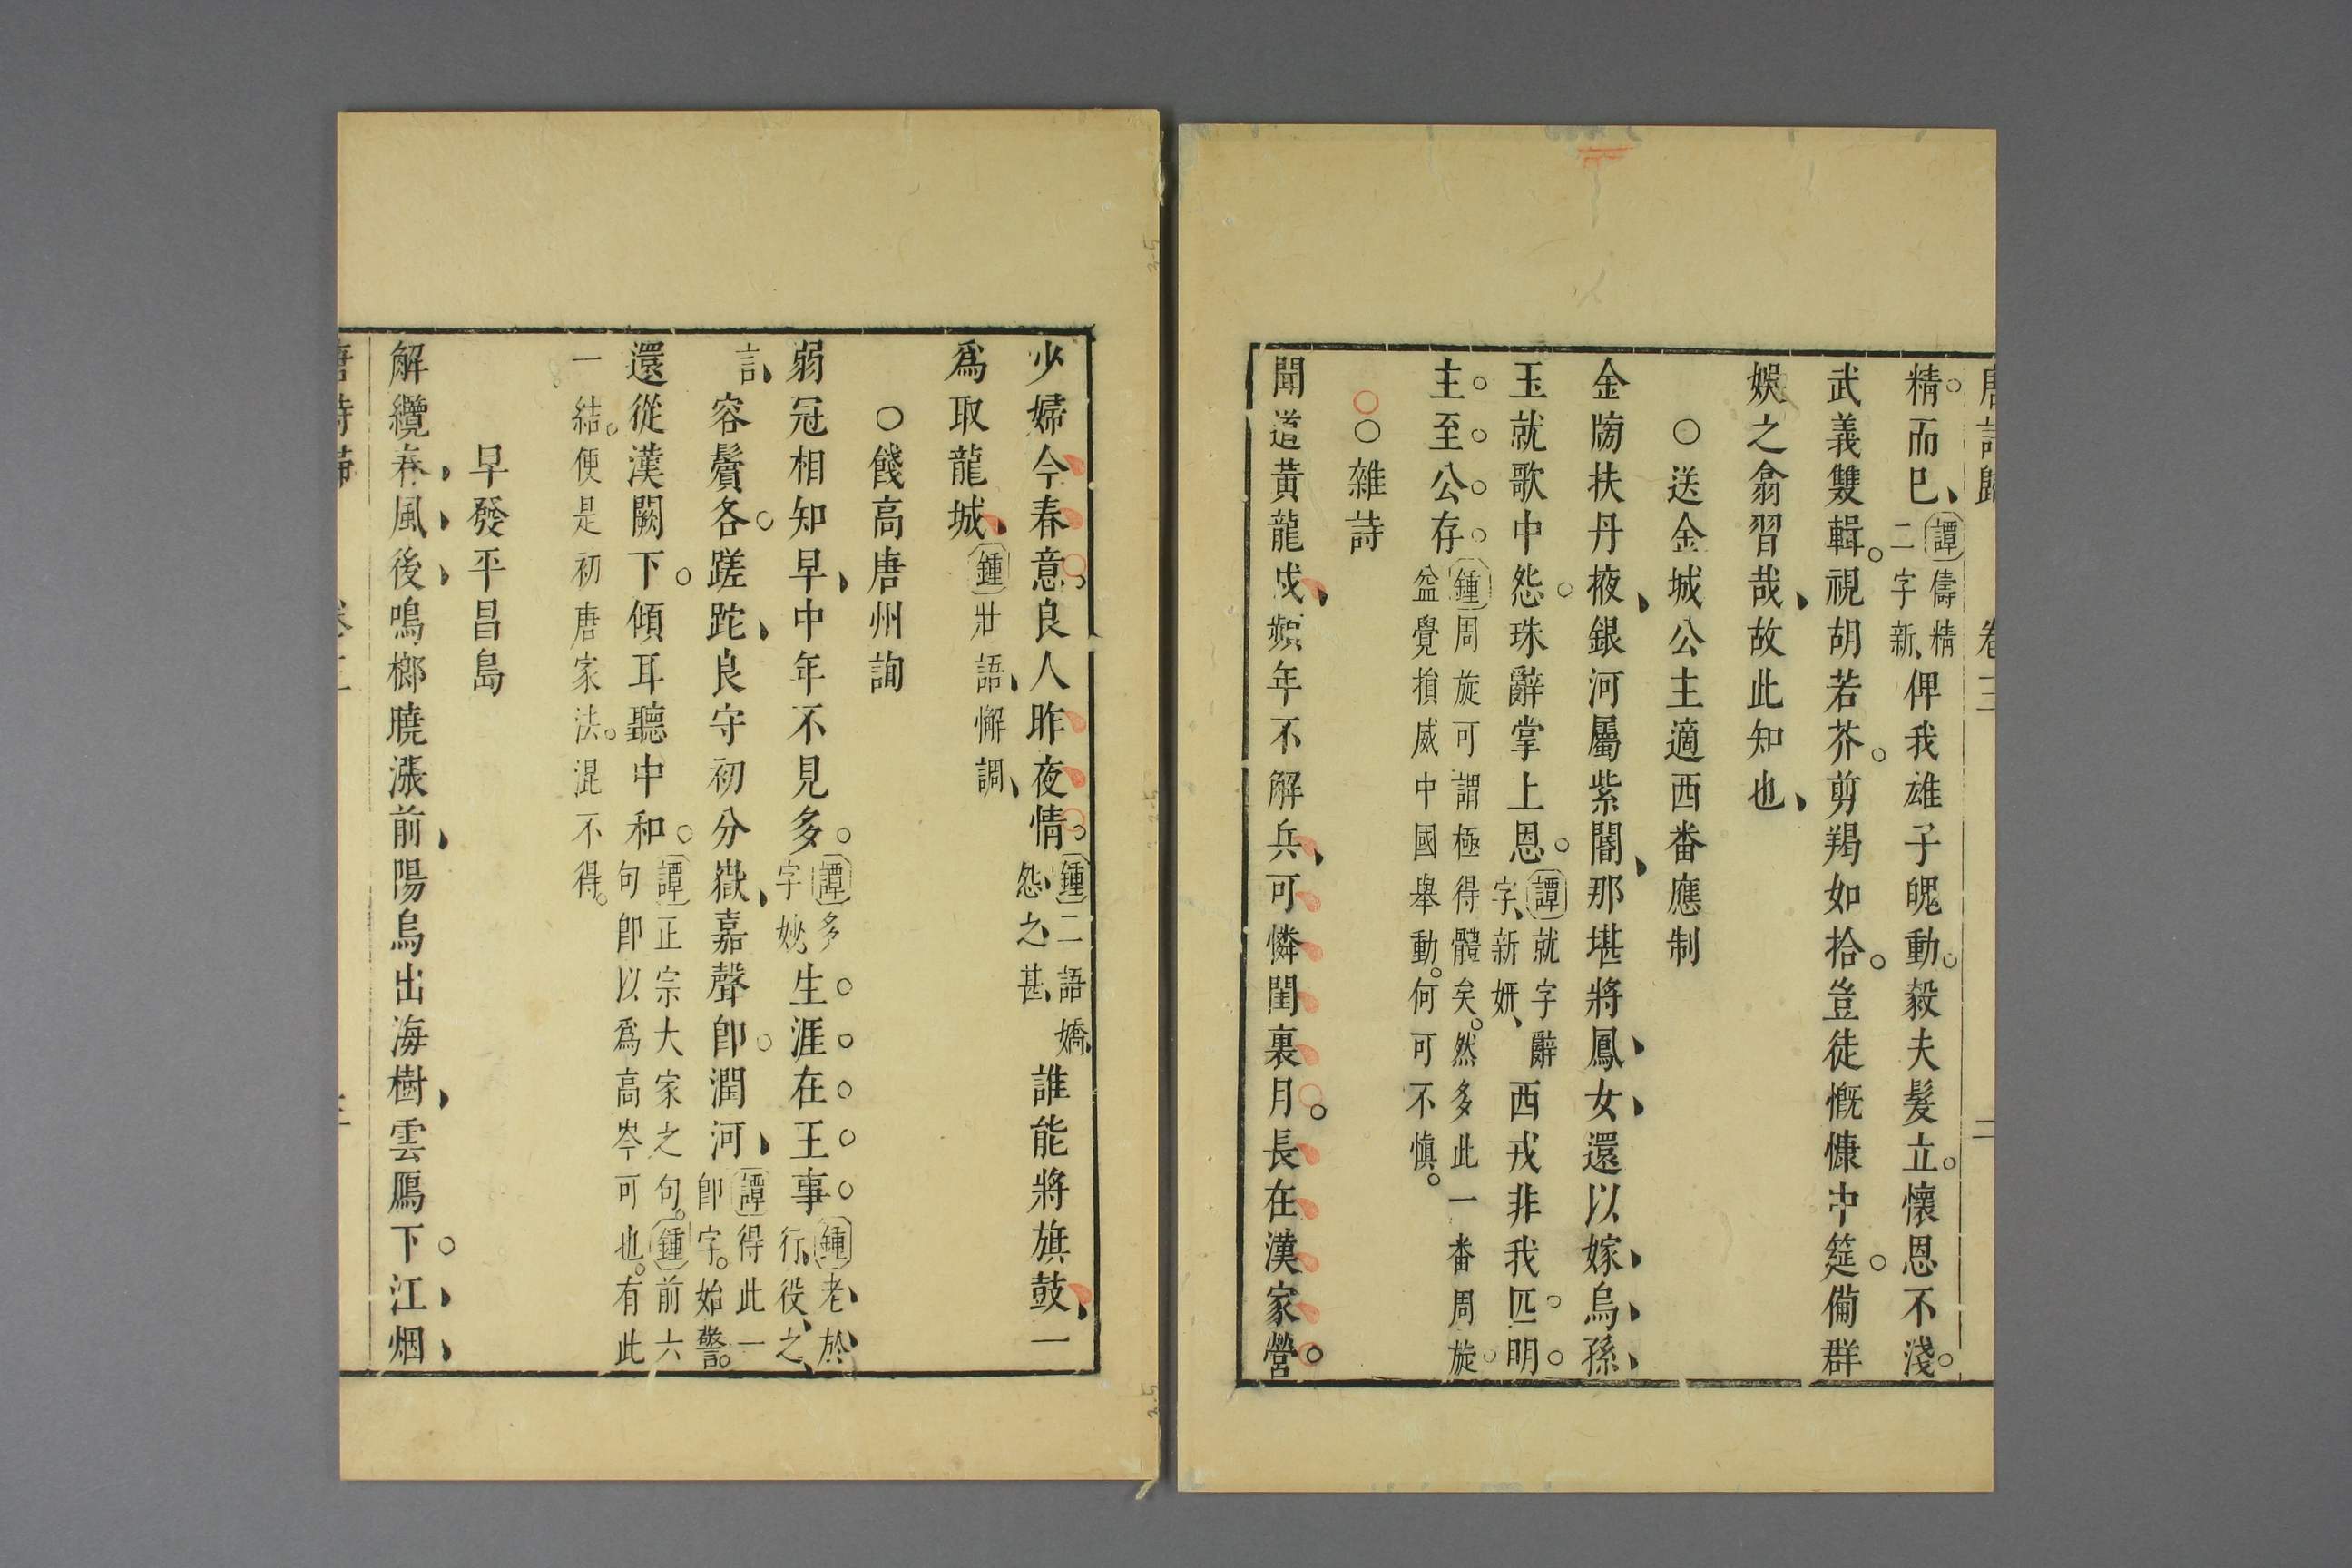 唐詩歸 卷三 二
精而已譚儔精二字新俾我雄子魄動毅夫髮立懷恩不淺
武義雙輯視胡若芥剪羯如拾豈徒慨慷中筵備群
娛之翕習哉故此知也
○送金城公主適西番應制
金牓扶丹掖銀河屬紫閽那堪將鳳女還以嫁烏孫
玉就歌中怨珠辭掌上恩譚就字辭字新妍西戎非我匹明
主至公存鍾周旋可謂極得體矣然多此一番周旋益覺損威中國舉動何可不慎
○○雜詩
聞道黃龍戍頻年不解兵可憐閨裏月長在漢家營
少婦今春意良人昨夜情鍾二語嬌怨之甚誰能將旗鼓一
爲取龍城鍾壯語懈調
○餞高唐州詢
弱冠相知早中年不見多譚多字妙生涯在王事鍾老於行役之
言容鬢各蹉跎良守初分嶽嘉聲卽潤河譚得此一卽字始警
還從漢闕下傾耳聽中和譚正宗大家之句卽以爲高岑可也鍾前六句有此
一結便是初唐家法混不得
早發平昌島
解纜春風後鳴榔曉漲前陽烏出海樹雲鴈下江烟
唐詩歸 卷三 三